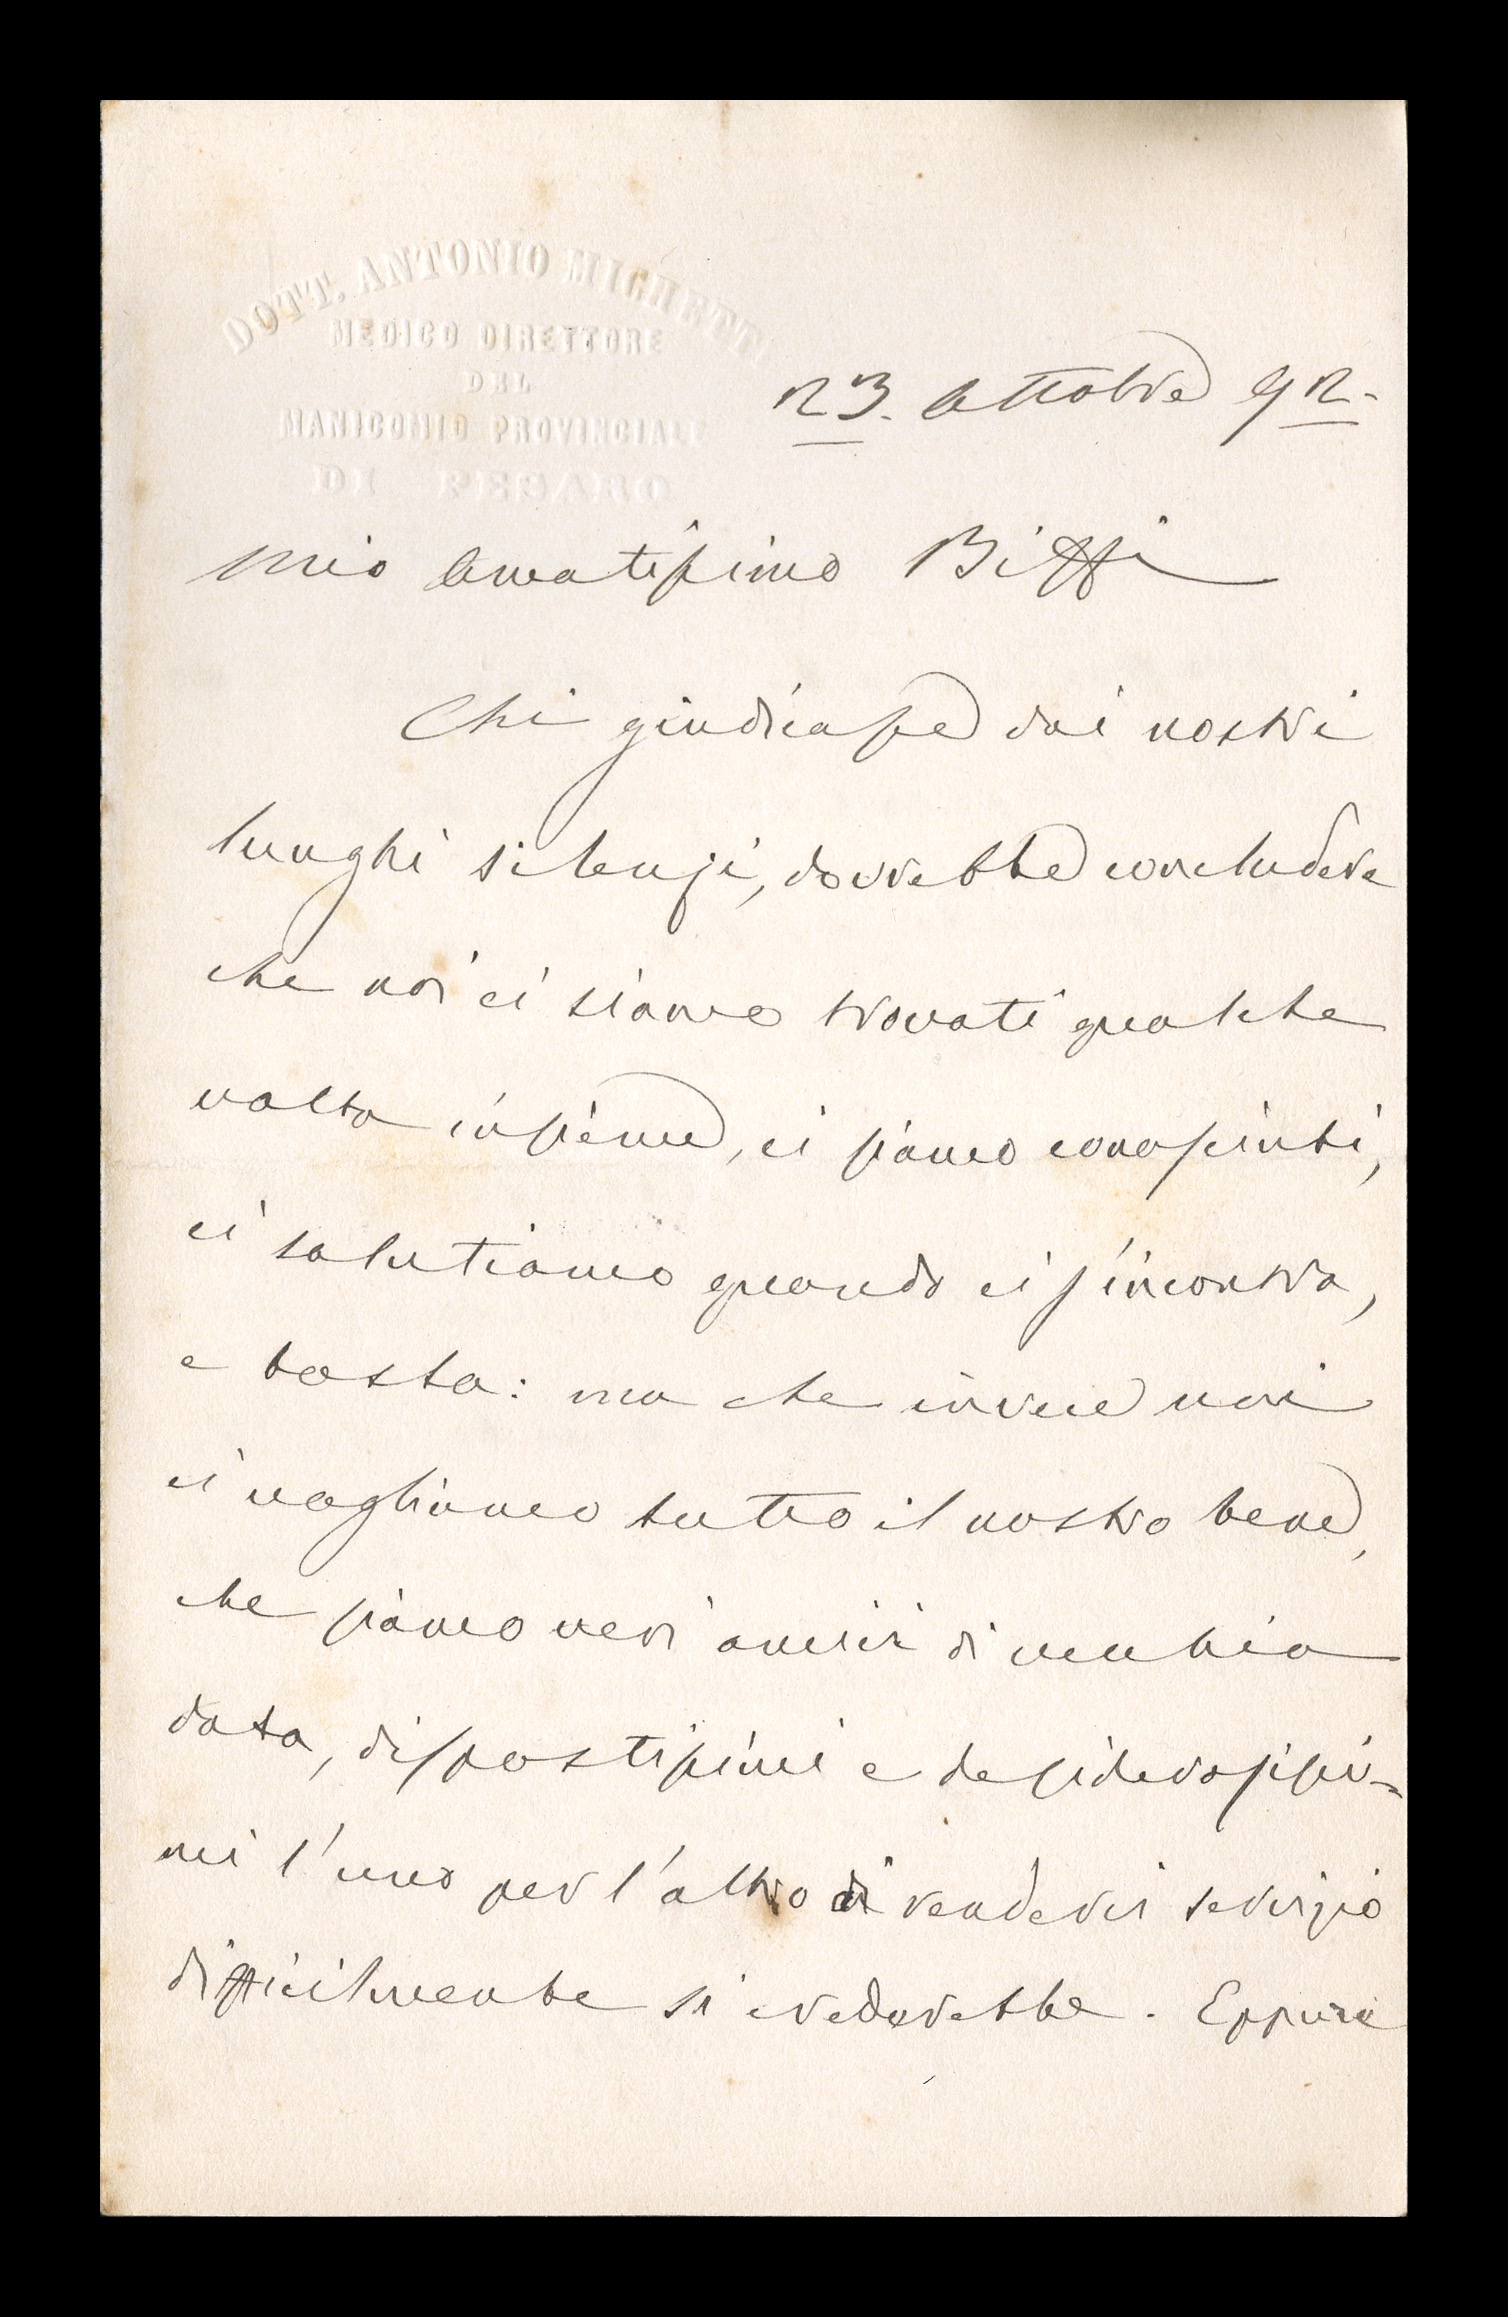 DOTT. ANTONIO MICHETTI
MEDICO DIRETTORE
DEL
MANICOMIO PROVINCIALE
DI PESARO
23. Ottobre 92.
Mio amatissimo Biffi
Chi giudicasse dai nostri
lunghi silenzi, dovrebbe concludere
che noi ci siamo trovati qualche
volta insieme, ci siamo conosciuti,
ci salutiamo quando ci s'incontra,
e basta: ma che invece noi
ci vogliamo tutto il nostro bene,
che siamo veri amici di vecchia
data, dispostissimi e desiderosissi-
mi l'uno per l'altro di renderci servizio
difficilmente si crederebbe. Eppure